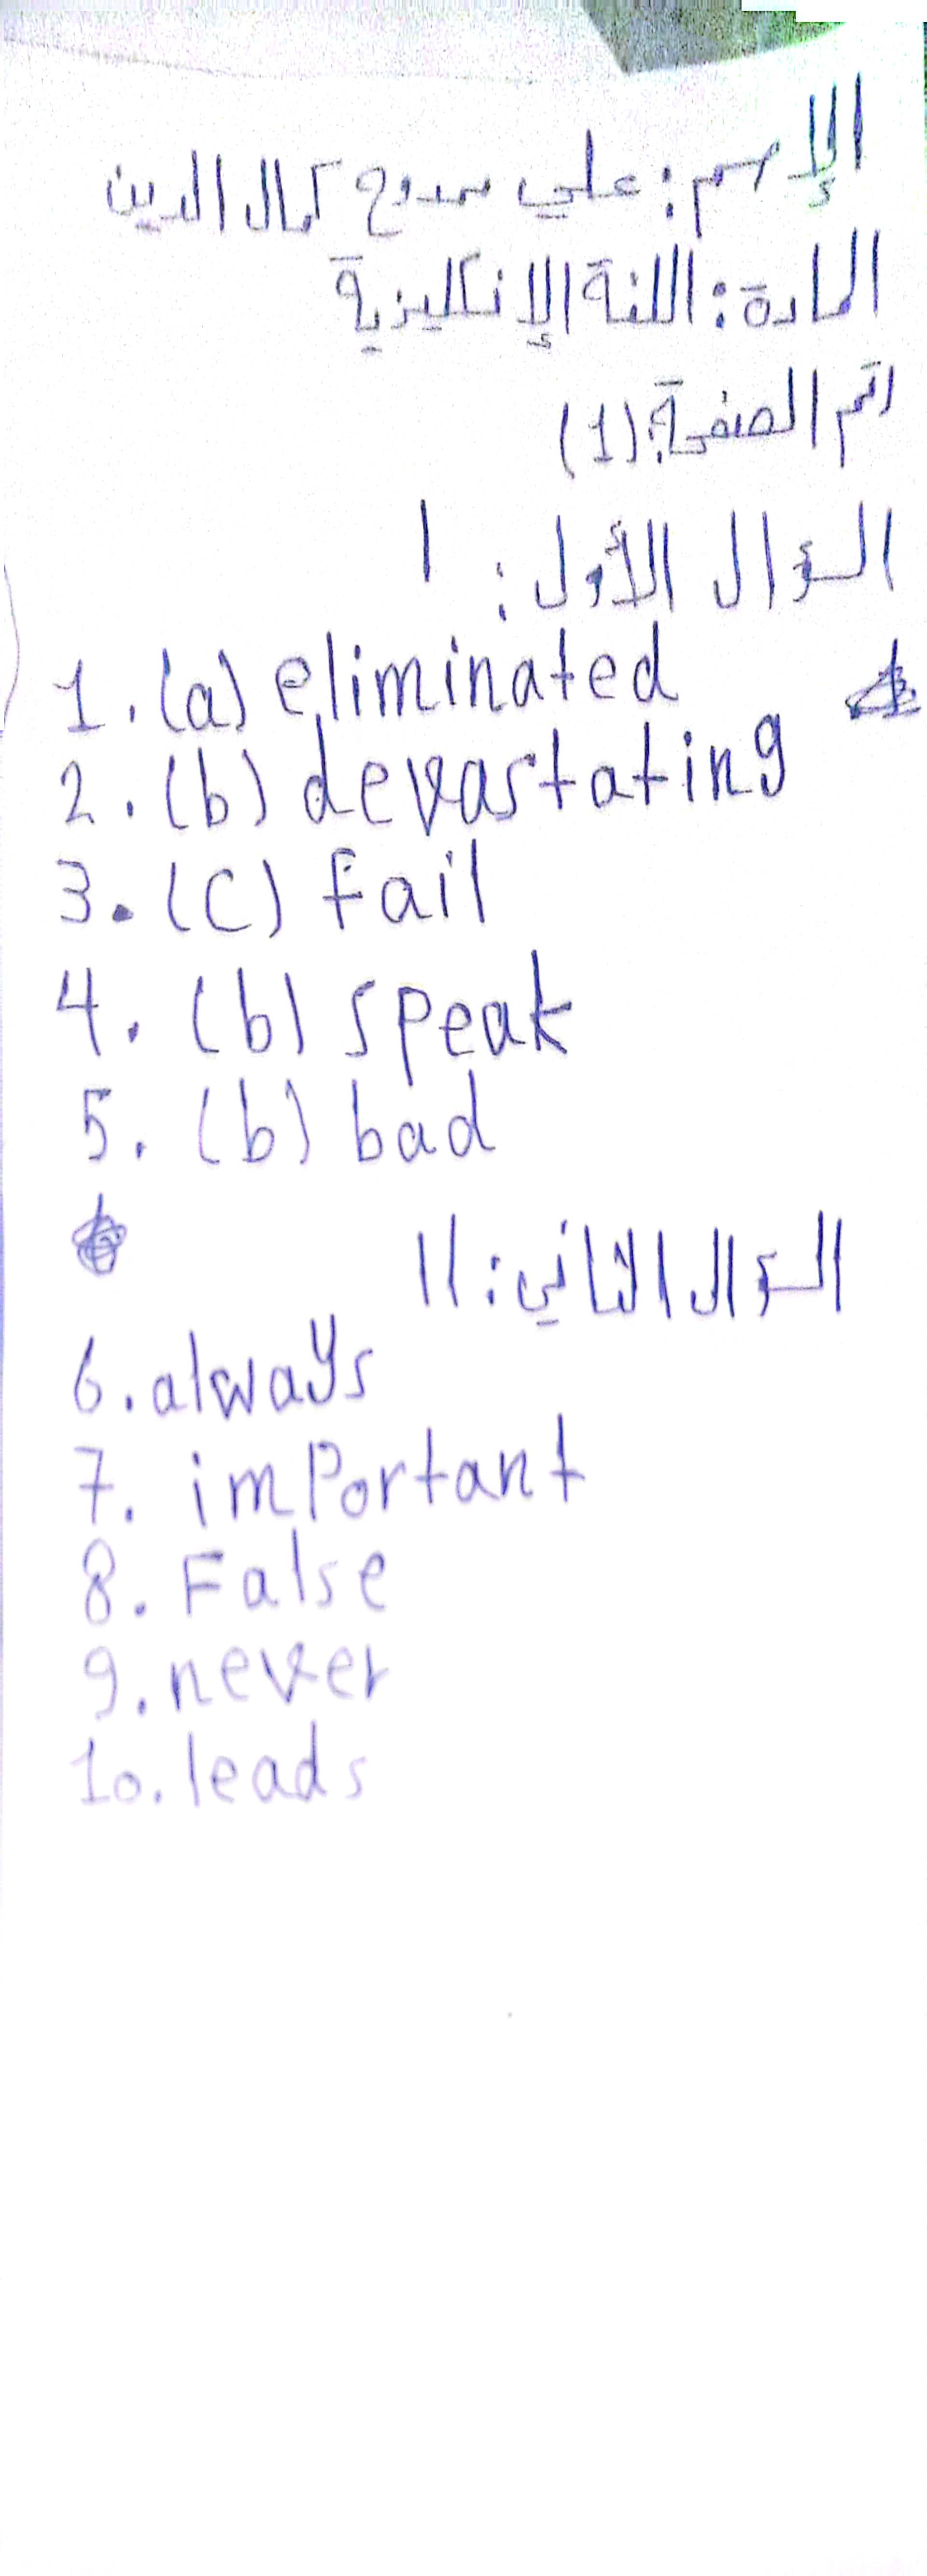 الإسم: علي ممدوح كمال الدين
المادة: اللغة الإنكليزية
رقم الصفحة (1)
السؤال الأول: I
1. (a) eliminated
2. (b) devastating
3. (c) fail
4. (b) speak
5. (b) bad
السؤال الثاني: II
6. always
7. important
8. False
9. never
10. leads